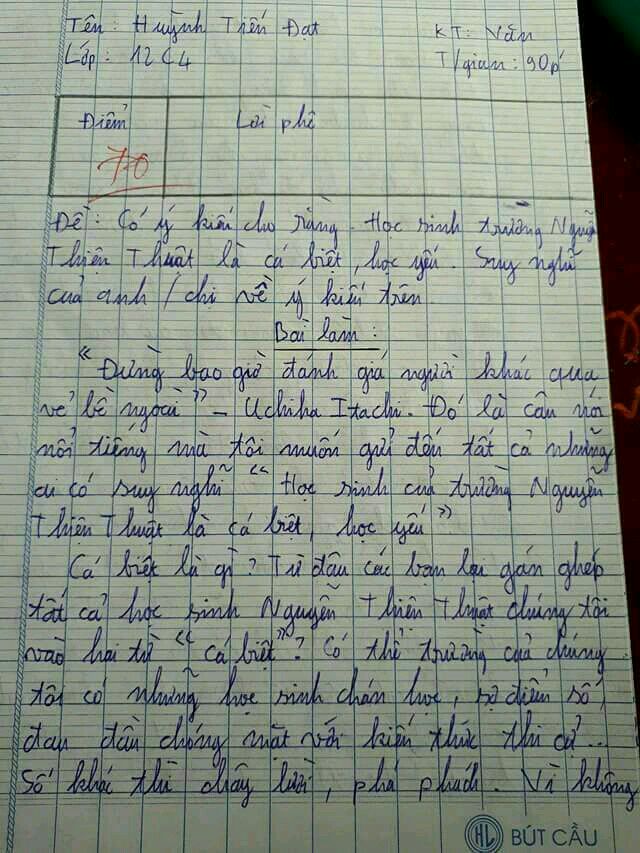 Tên: Huỳnh Tiến Đạt
KT: Văn
Lớp: 12C4
T/gian: 90p'
Điểm
Lời phê
7,0
Đề: Có ý kiến cho rằng. Học sinh trường Nguyễn
Thiện Thuật là cá biệt, học yếu. Suy nghĩ
của anh / chị về ý kiến trên
Bài làm:
“Đừng bao giờ đánh giá người khác qua
vẻ bề ngoài” - Uchiha Itachi. Đó là câu nói
nổi tiếng mà tôi muốn gửi đến tất cả những
ai có suy nghĩ “Học sinh của trường Nguyễn
Thiện Thuật là cá biệt, học yếu”
Cá biệt là gì? Từ đâu các bạn lại gán ghép
tất cả học sinh Nguyễn Thiện Thuật chúng tôi
vào hai từ “cá biệt”? Có thể trường của chúng
tôi có những học sinh chán học, sợ điểm số,
đau đầu chóng mặt với kiến thức thi cử...
Số khác thì chây lười, phá phách. Vì không
HL BÚT CẦU